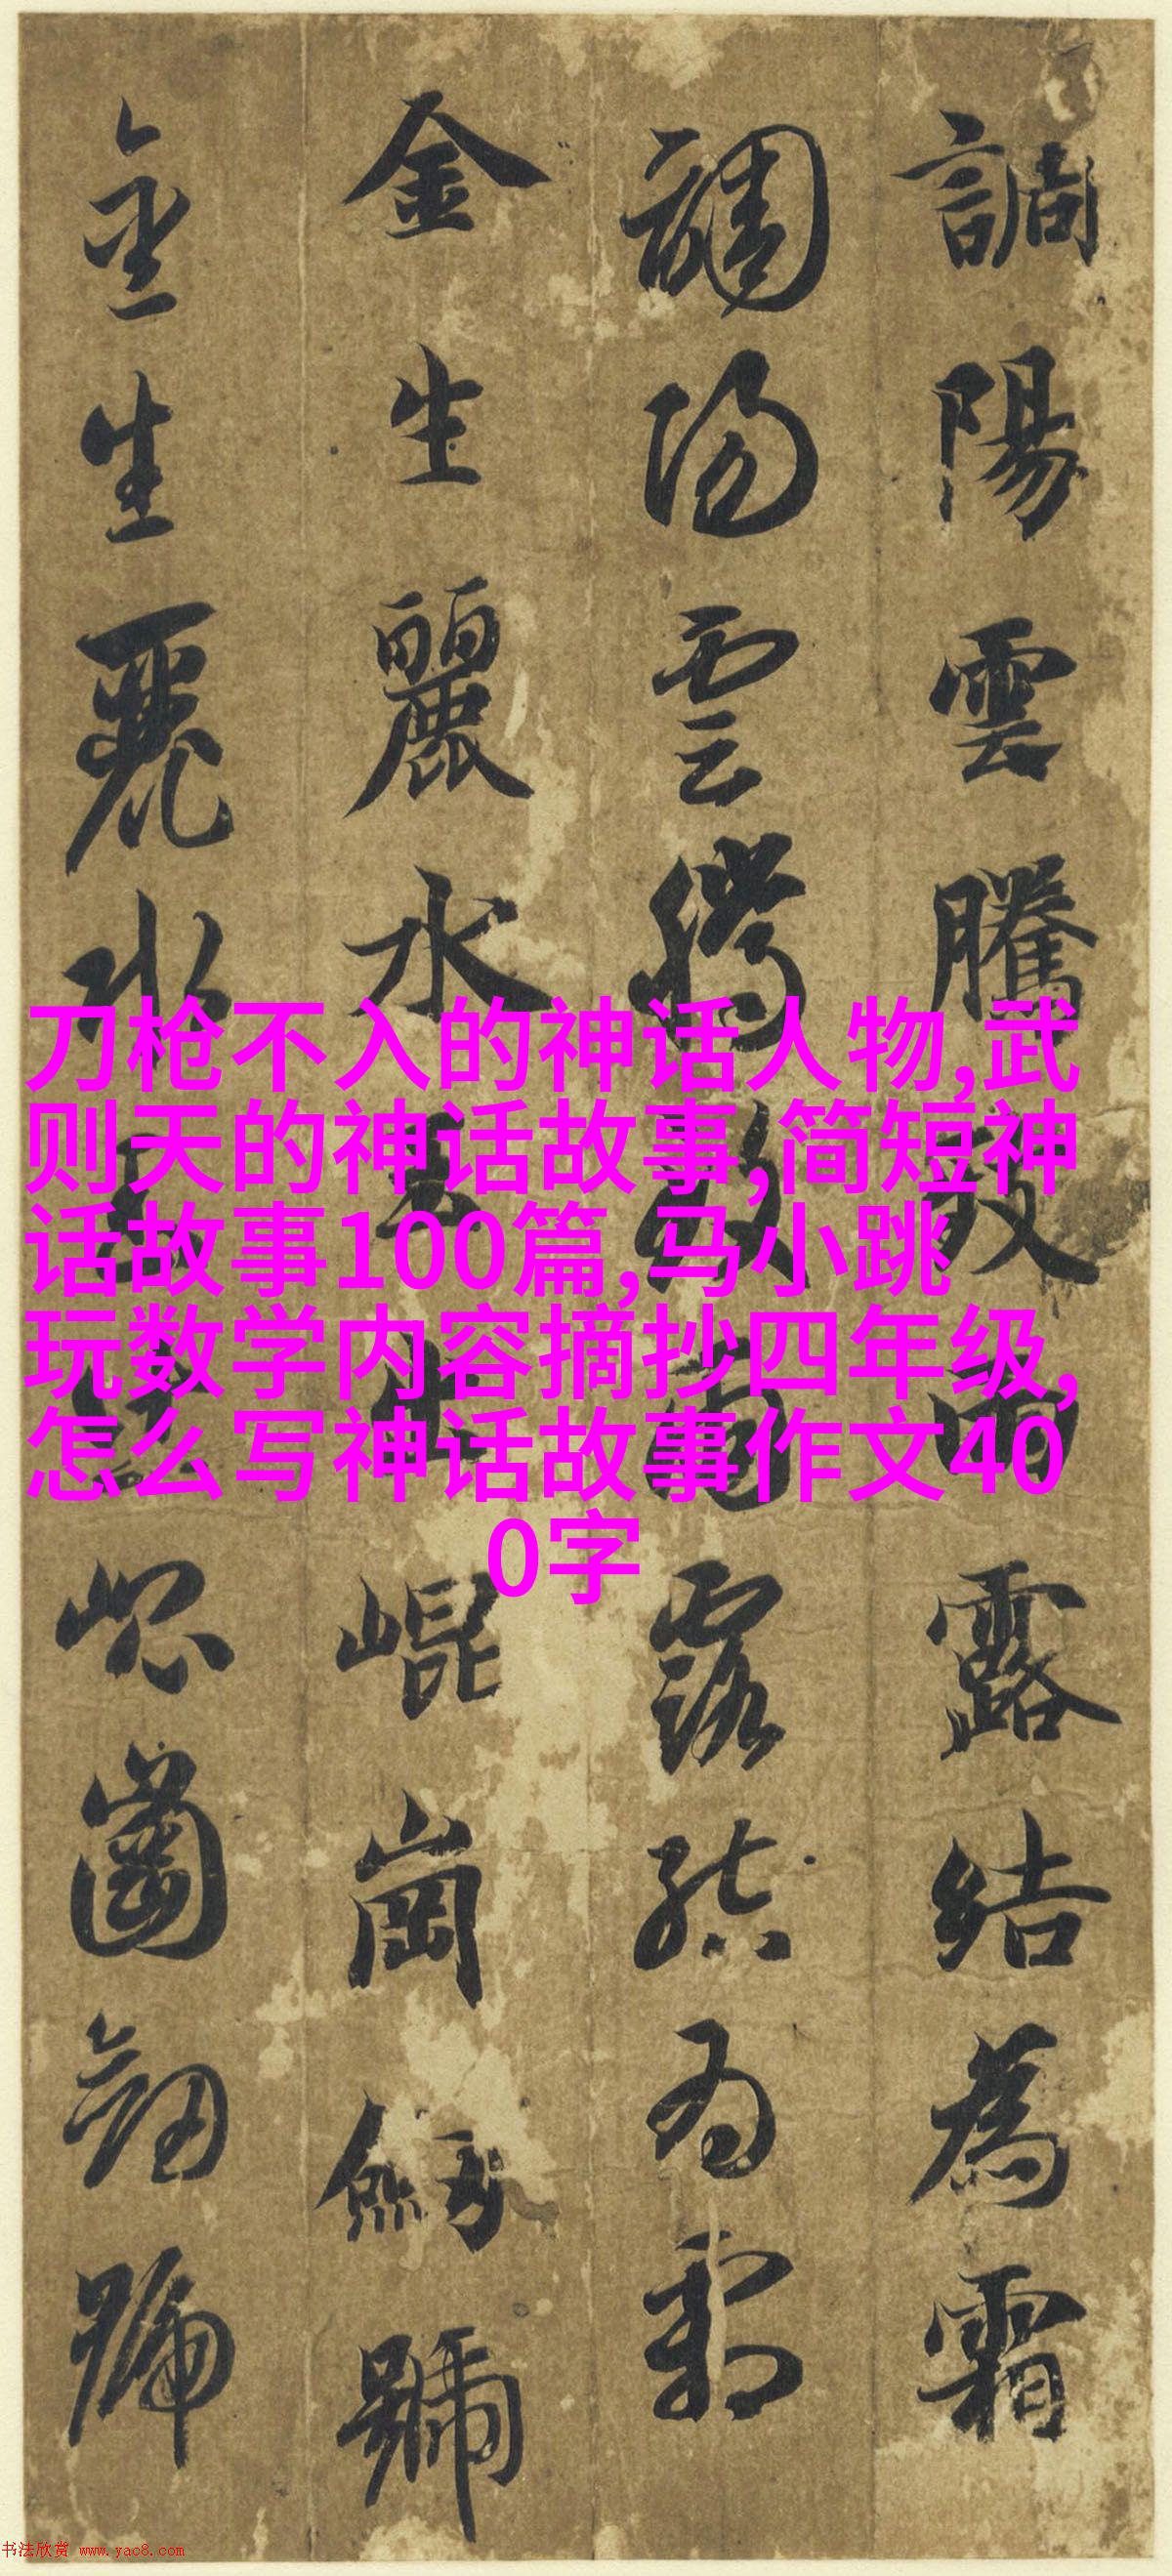 調陽雲騰致雨露結為霜
調陽雲騰致雨露結為霜
金生麗水玉出崐崗號
金生麗水玉出崐崗劒號
刀枪不入的神话人物,武
则天的神话故事,简短神
话故事100篇,马小跳
玩数学内容摘抄四年级,
怎么写神话故事作文40
0字
书法欣赏 www.yac8.com